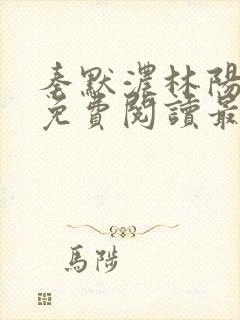 秦默濃林陽
免費閱讀最
馬陟